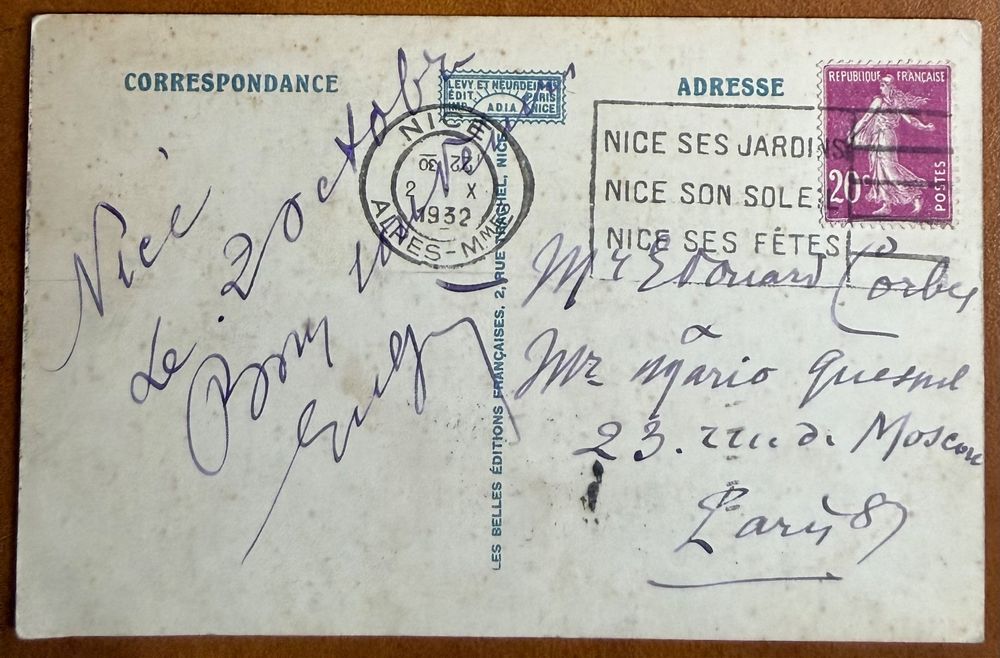 CORRESPONDANCE
ADRESSE
LEVY ET NEURDEIN
ÉDIT. PARIS
IMP. ADIA NICE
REPUBLIQUE FRANÇAISE
20c
POSTES
NICE
22 30
2 X
1932
ALPES-MMES
NICE SES JARDINS
NICE SON SOLEIL
NICE SES FÊTES
Nice
Le 2 octobre
Bon
LES BELLES ÉDITIONS FRANÇAISES, 2, RUE TRACHEL, NICE
Mr Edouard Corby
à
Mr Mario Quesnel
23. rue de Moscou
Paris 8